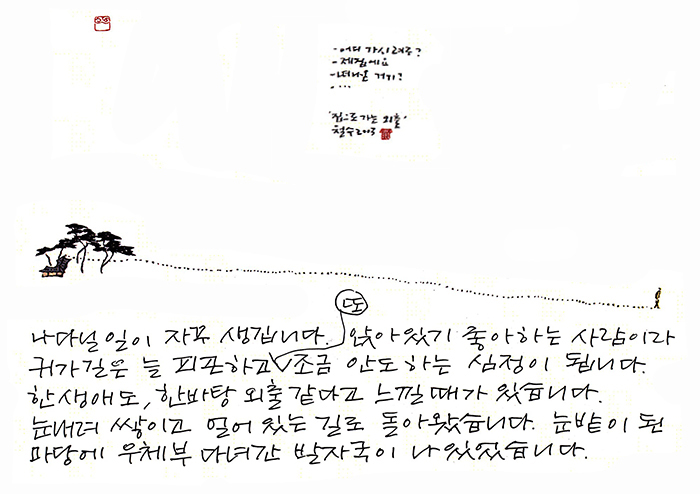 -어디 가시려구?
-제집에요
-떠나온 거기?
-...
'집으로 가는 외출'
철수2003
또
나다닐 일이 자꾸 생깁니다. 앉아있기 좋아하는 사람이라
귀가길은 늘 피곤하고 조금 안도하는 심정이 됩니다.
한생애도, 한바탕 외출 같다고 느낄 때가 있습니다.
눈내려 쌓이고 얼어 있는 길로 돌아왔습니다. 눈밭이 된
마당에 우체부 다녀간 발자국이 나 있었습니다.